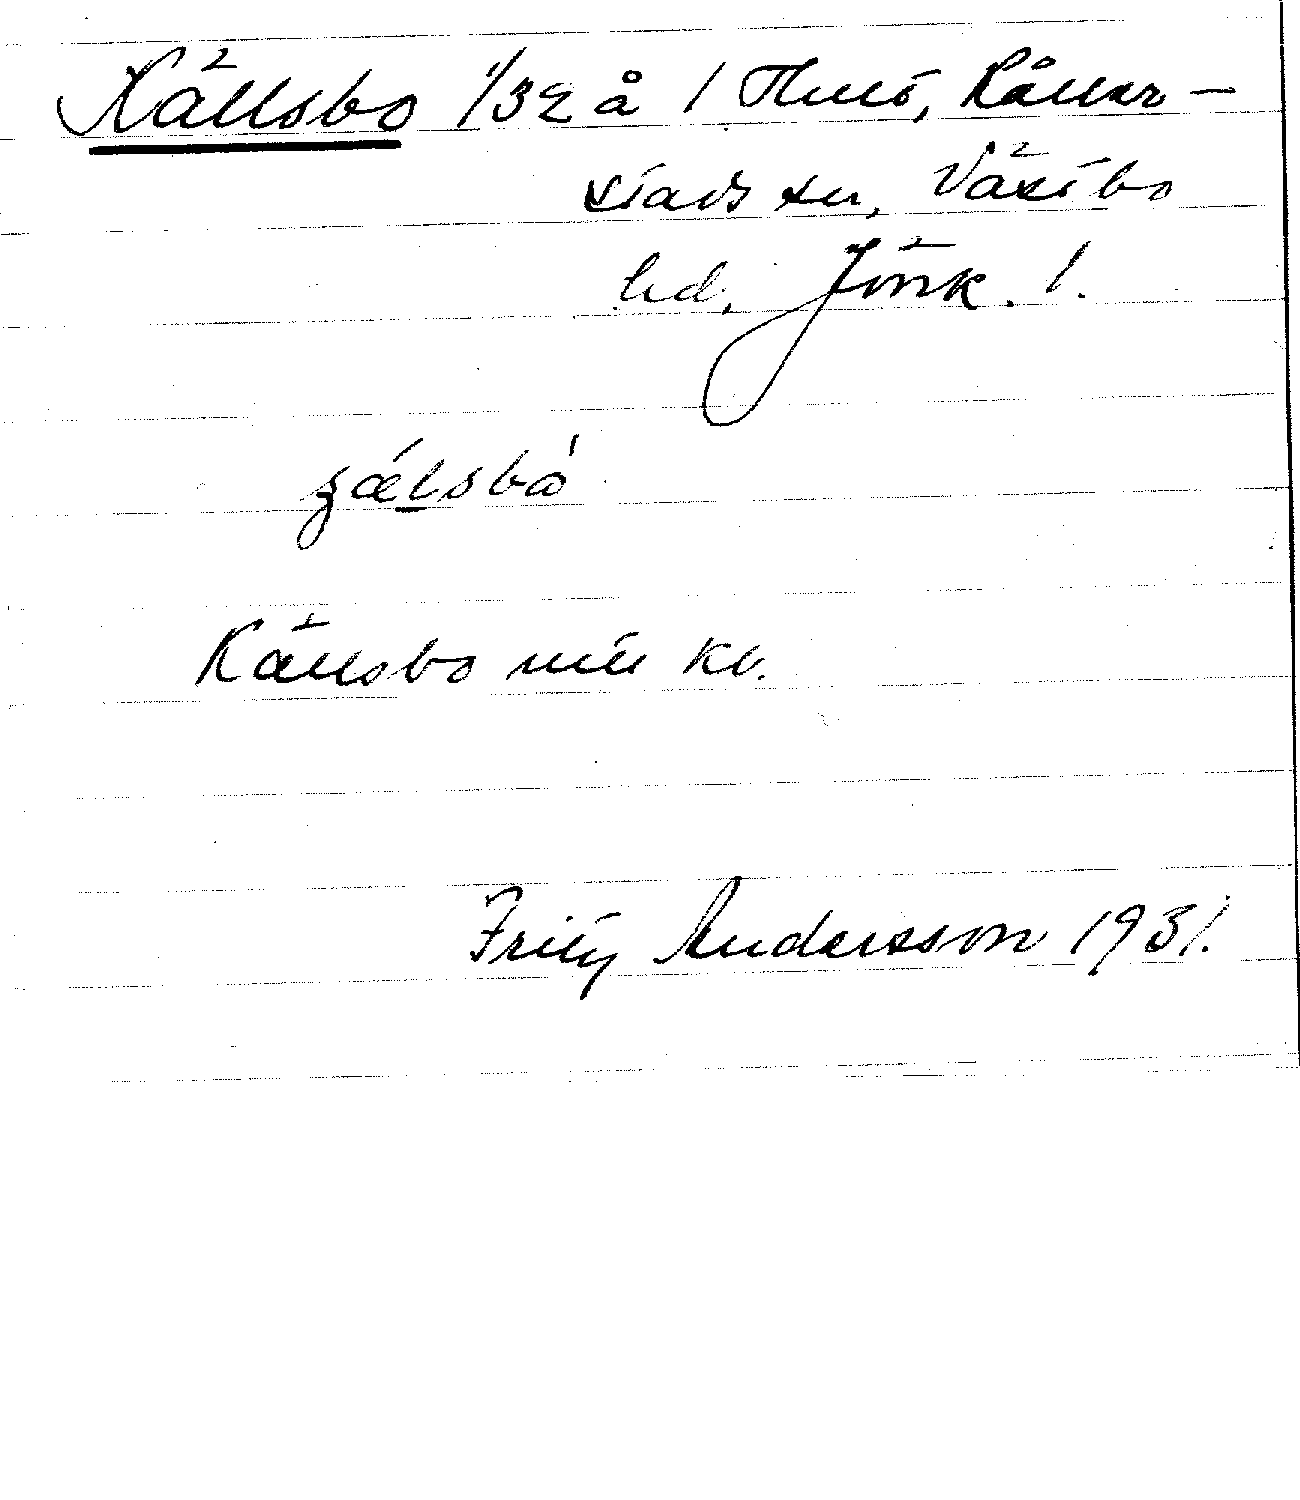 Källsbo 1/32 å 1 Hult, Kåller-
stads sn, Västbo
hd, Jönk. l.
Källsbo mtl kb.
Fritz Andersson 1931.